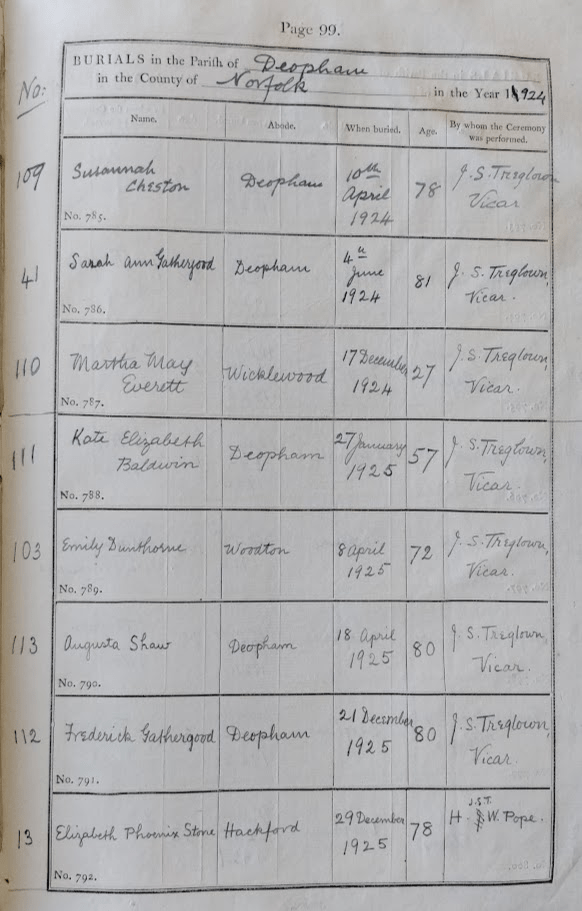 Page 99.
BURIALS in the Parish of Deopham
in the County of Norfolk in the Year 1924
No:
Name. Abode. When buried. Age. By whom the Ceremony was performed.
109
Susannah
Cheston
No. 785.
Deopham
10th
April
1924
78
J. S. Treglown
Vicar
41
Sarah Ann Gathergood
No. 786.
Deopham
4th
June
1924
81
J. S. Treglown,
Vicar.
110
Martha May
Everett
No. 787.
Wicklewood
17 December
1924
27
J. S. Treglown,
Vicar.
111
Kate Elizabeth
Baldwin
No. 788.
Deopham
27 January
1925
57
J. S. Treglown,
Vicar.
103
Emily Dunthorne
No. 789.
Woodton
8 April
1925
72
J. S. Treglown,
Vicar.
113
Augusta Shaw
No. 790.
Deopham
18 April
1925
80
J. S. Treglown,
Vicar.
112
Frederick Gathergood
No. 791.
Deopham
21 December
1925
80
J. S. Treglown,
Vicar.
13
Elizabeth Phoenix Stone
No. 792.
Hackford
29 December
1925
78
J.S.T.
H. W. Pope.